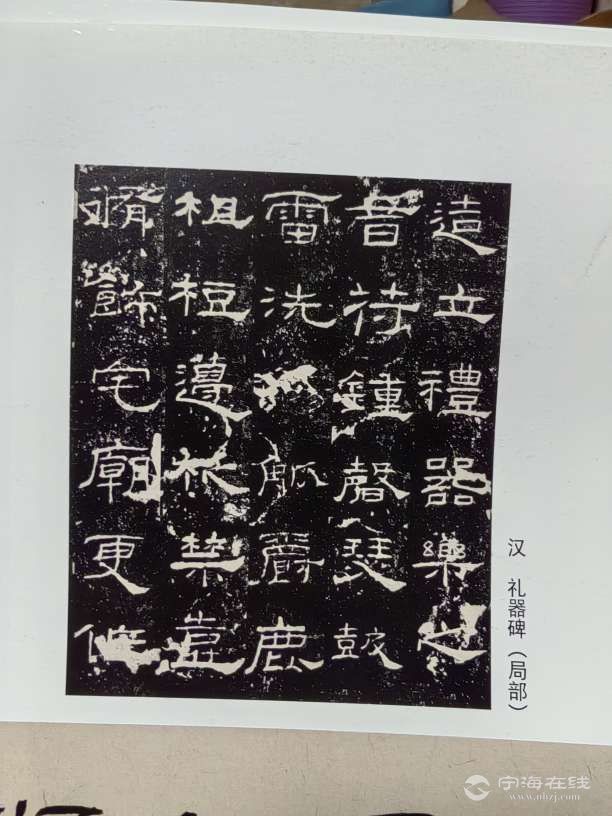 造立禮器樂之
音苻鍾磬瑟鼓
雷洗觚爵鹿
柤梪籩柉禁壺
脩飾宅廟更作
汉 礼器碑（局部）
宁海在线
www.nhzj.com